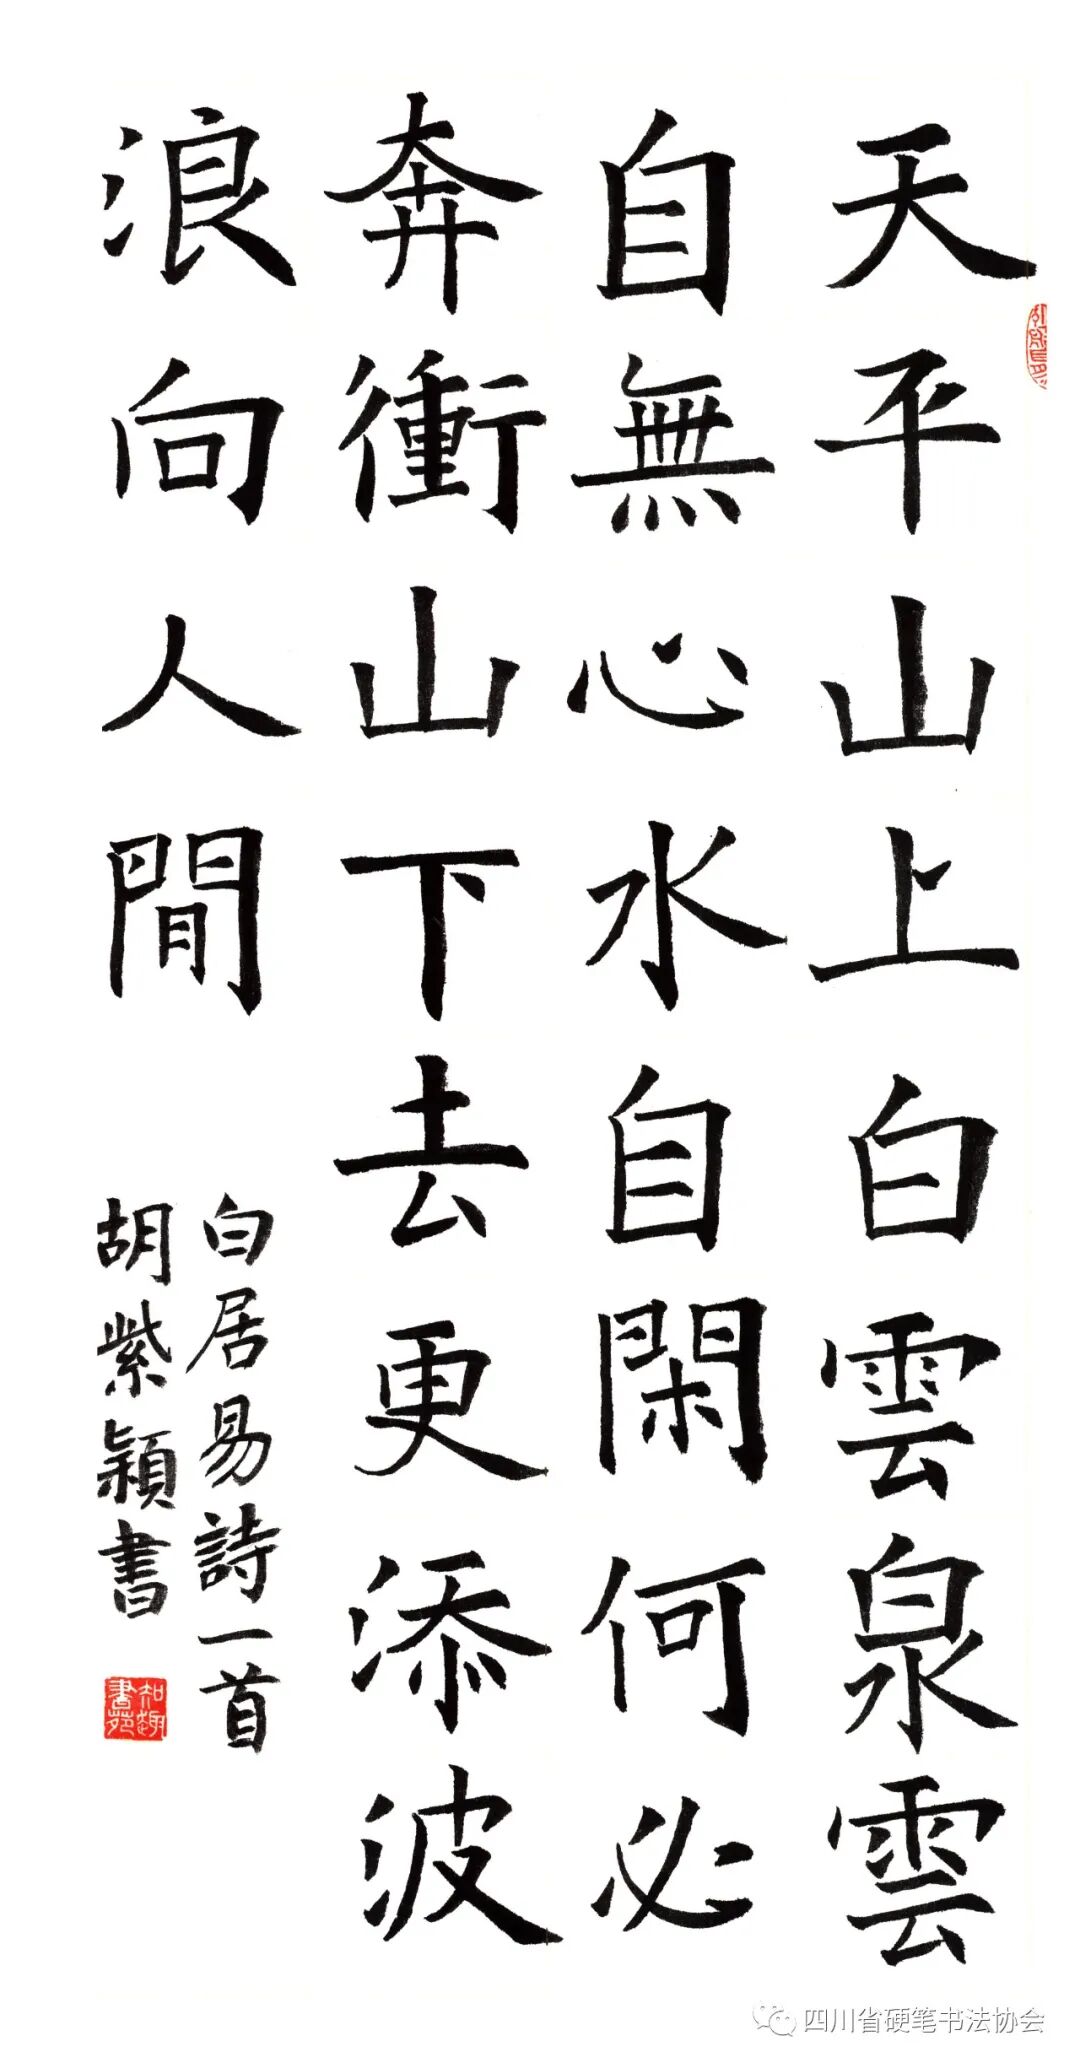 天平山上白雲泉雲
自無心水自閑何必
奔衝山下去更添波
浪向人間
白居易詩一首
胡紫穎書
知趣書苑
四川省硬笔书法协会